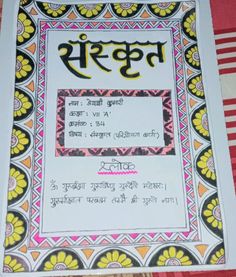 संस्कृत
नाम : वैष्णवी कुमारी
कक्षा : VII 'A'
क्रमांक : 34
विषय : संस्कृत (परियोजना कार्य)
श्लोक
ॐ गुरुर्ब्रह्मा गुरुर्विष्णु गुरुर्देवो महेश्वरः।
गुरुर्साक्षात परब्रह्म तस्मै श्री गुरुवे नमः।